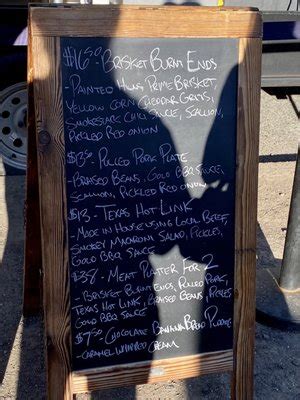 $16.50 - Brisket Burnt Ends
- Painted Hills Prime Brisket,
Yellow Corn Cheddar Grits,
Smokestack Chili Sauce, Scallion,
Pickled Red Onion
$13.50 - Pulled Pork Plate
- Braised Beans, Gold BBQ Sauce,
Scallion, Pickled Red Onion
$13 - Texas Hot Link
- Made in House using Local Beef,
Smokey Macaroni Salad, Pickles,
Gold BBQ Sauce
$38 - Meat Platter For 2
- Brisket Burnt Ends, Pulled Pork,
Texas Hot Link, Braised Beans, Pickles
Gold BBQ Sauce
$7.50 Chocolate Banana Bread Pudding
- Caramel Whipped Cream